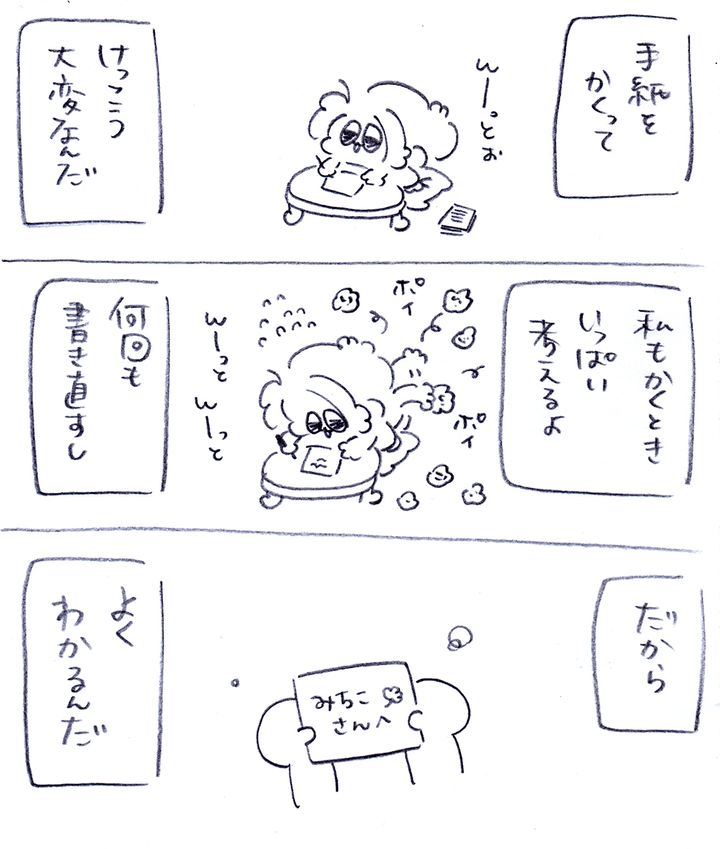 手紙を
かくって
wーっとぉ
けっこう
大変なんだ
私もかくとき
いっぱい
考えるよ
ポイ
ポイ
wーっと
wーっと
何回も
書き直すし
だから
みちこ
さんへ
よく
わかるんだ